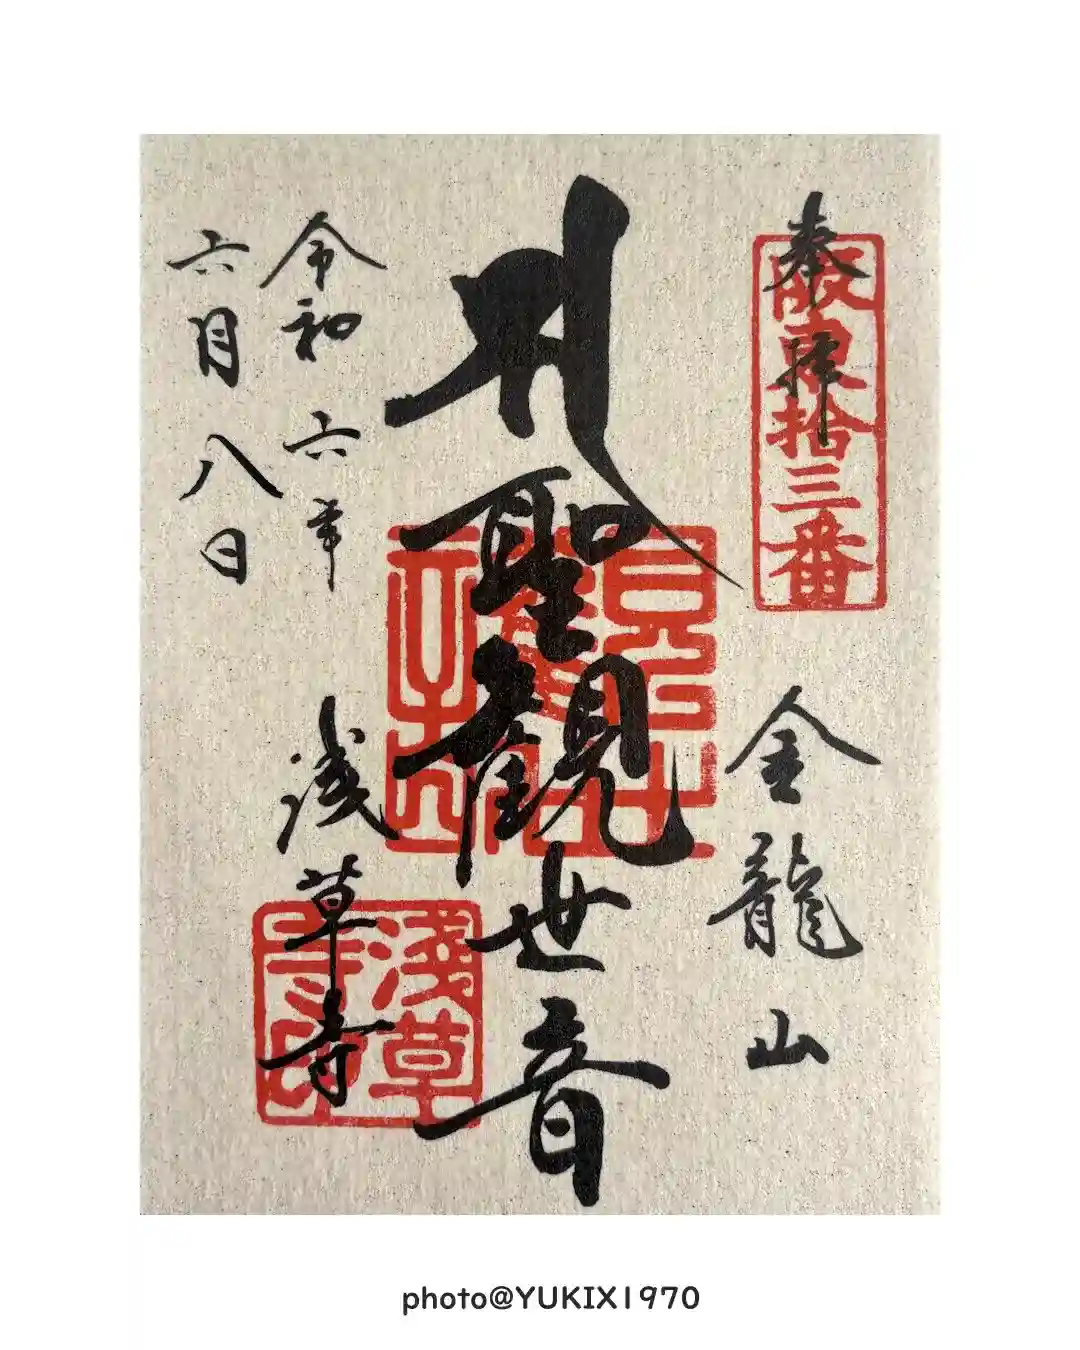 奉拝
阪東拾三番
金龍山
聖観世音
浅草寺
淺草寺印
令和六年
六月八日
photo@YUKIX1970